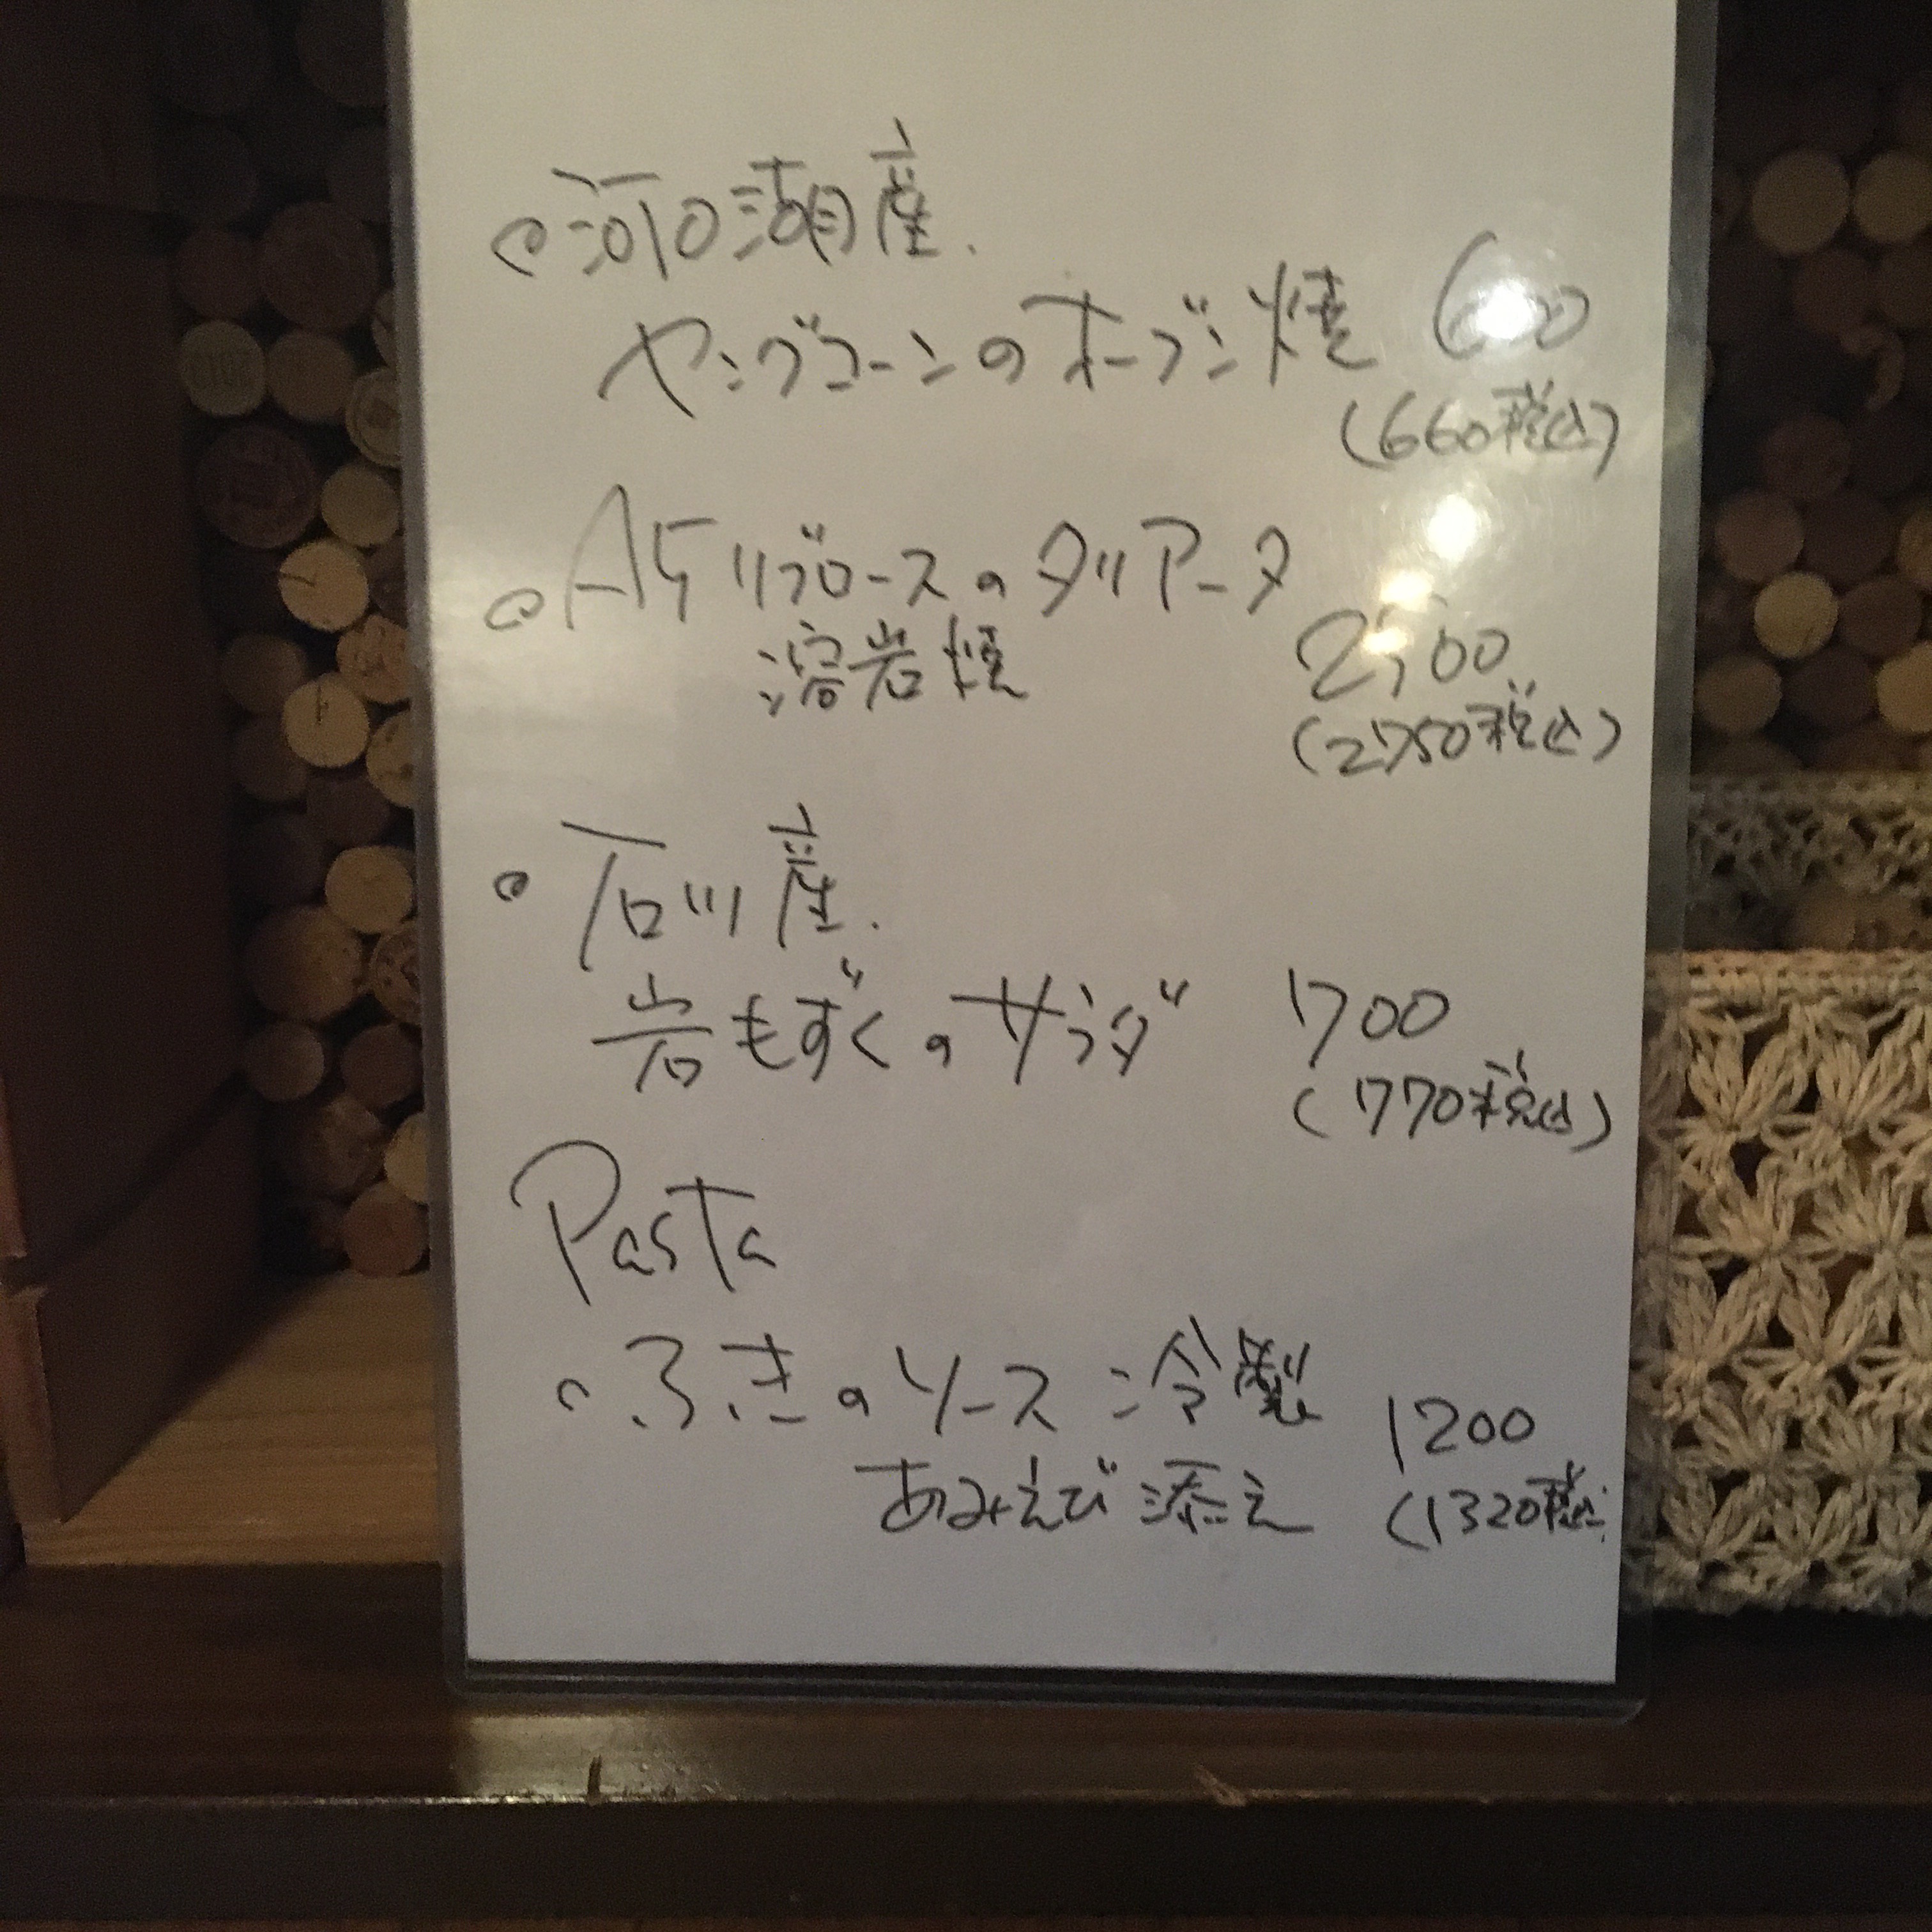 河口湖産.
ヤングコーンのオーブン焼 600
(660税込)
A5リブロースのタリアータ
溶岩焼 2500
(2750税込)
石川産.
岩もずくのサラダ 700
(770税込)
Pasta
ふきのソース 冷製 1200
あみえび添え (1320税込